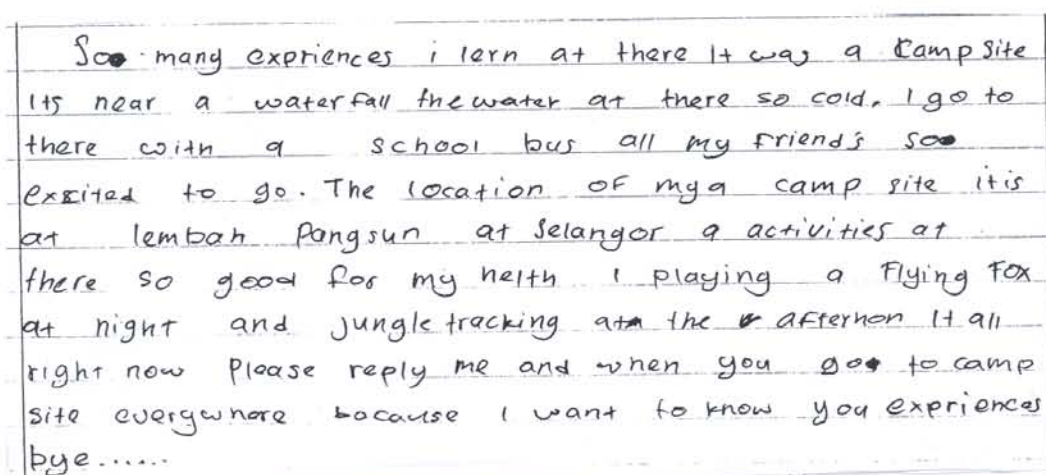 Soo many expriences i lern at there It was a Camp Site
Its near a waterfall the water at there so cold. I go to
there with a school bus all my friend's soo
exsited to go. The location of mya camp site itis
at lembah Pangsun at Selangor a activities at
there so good for my helth I playing a Flying Fox
at night and jungle tracking at the afternon It all
right now Please reply me and when you go to camp
site everywhere bacause I want to know you expriences
bye......